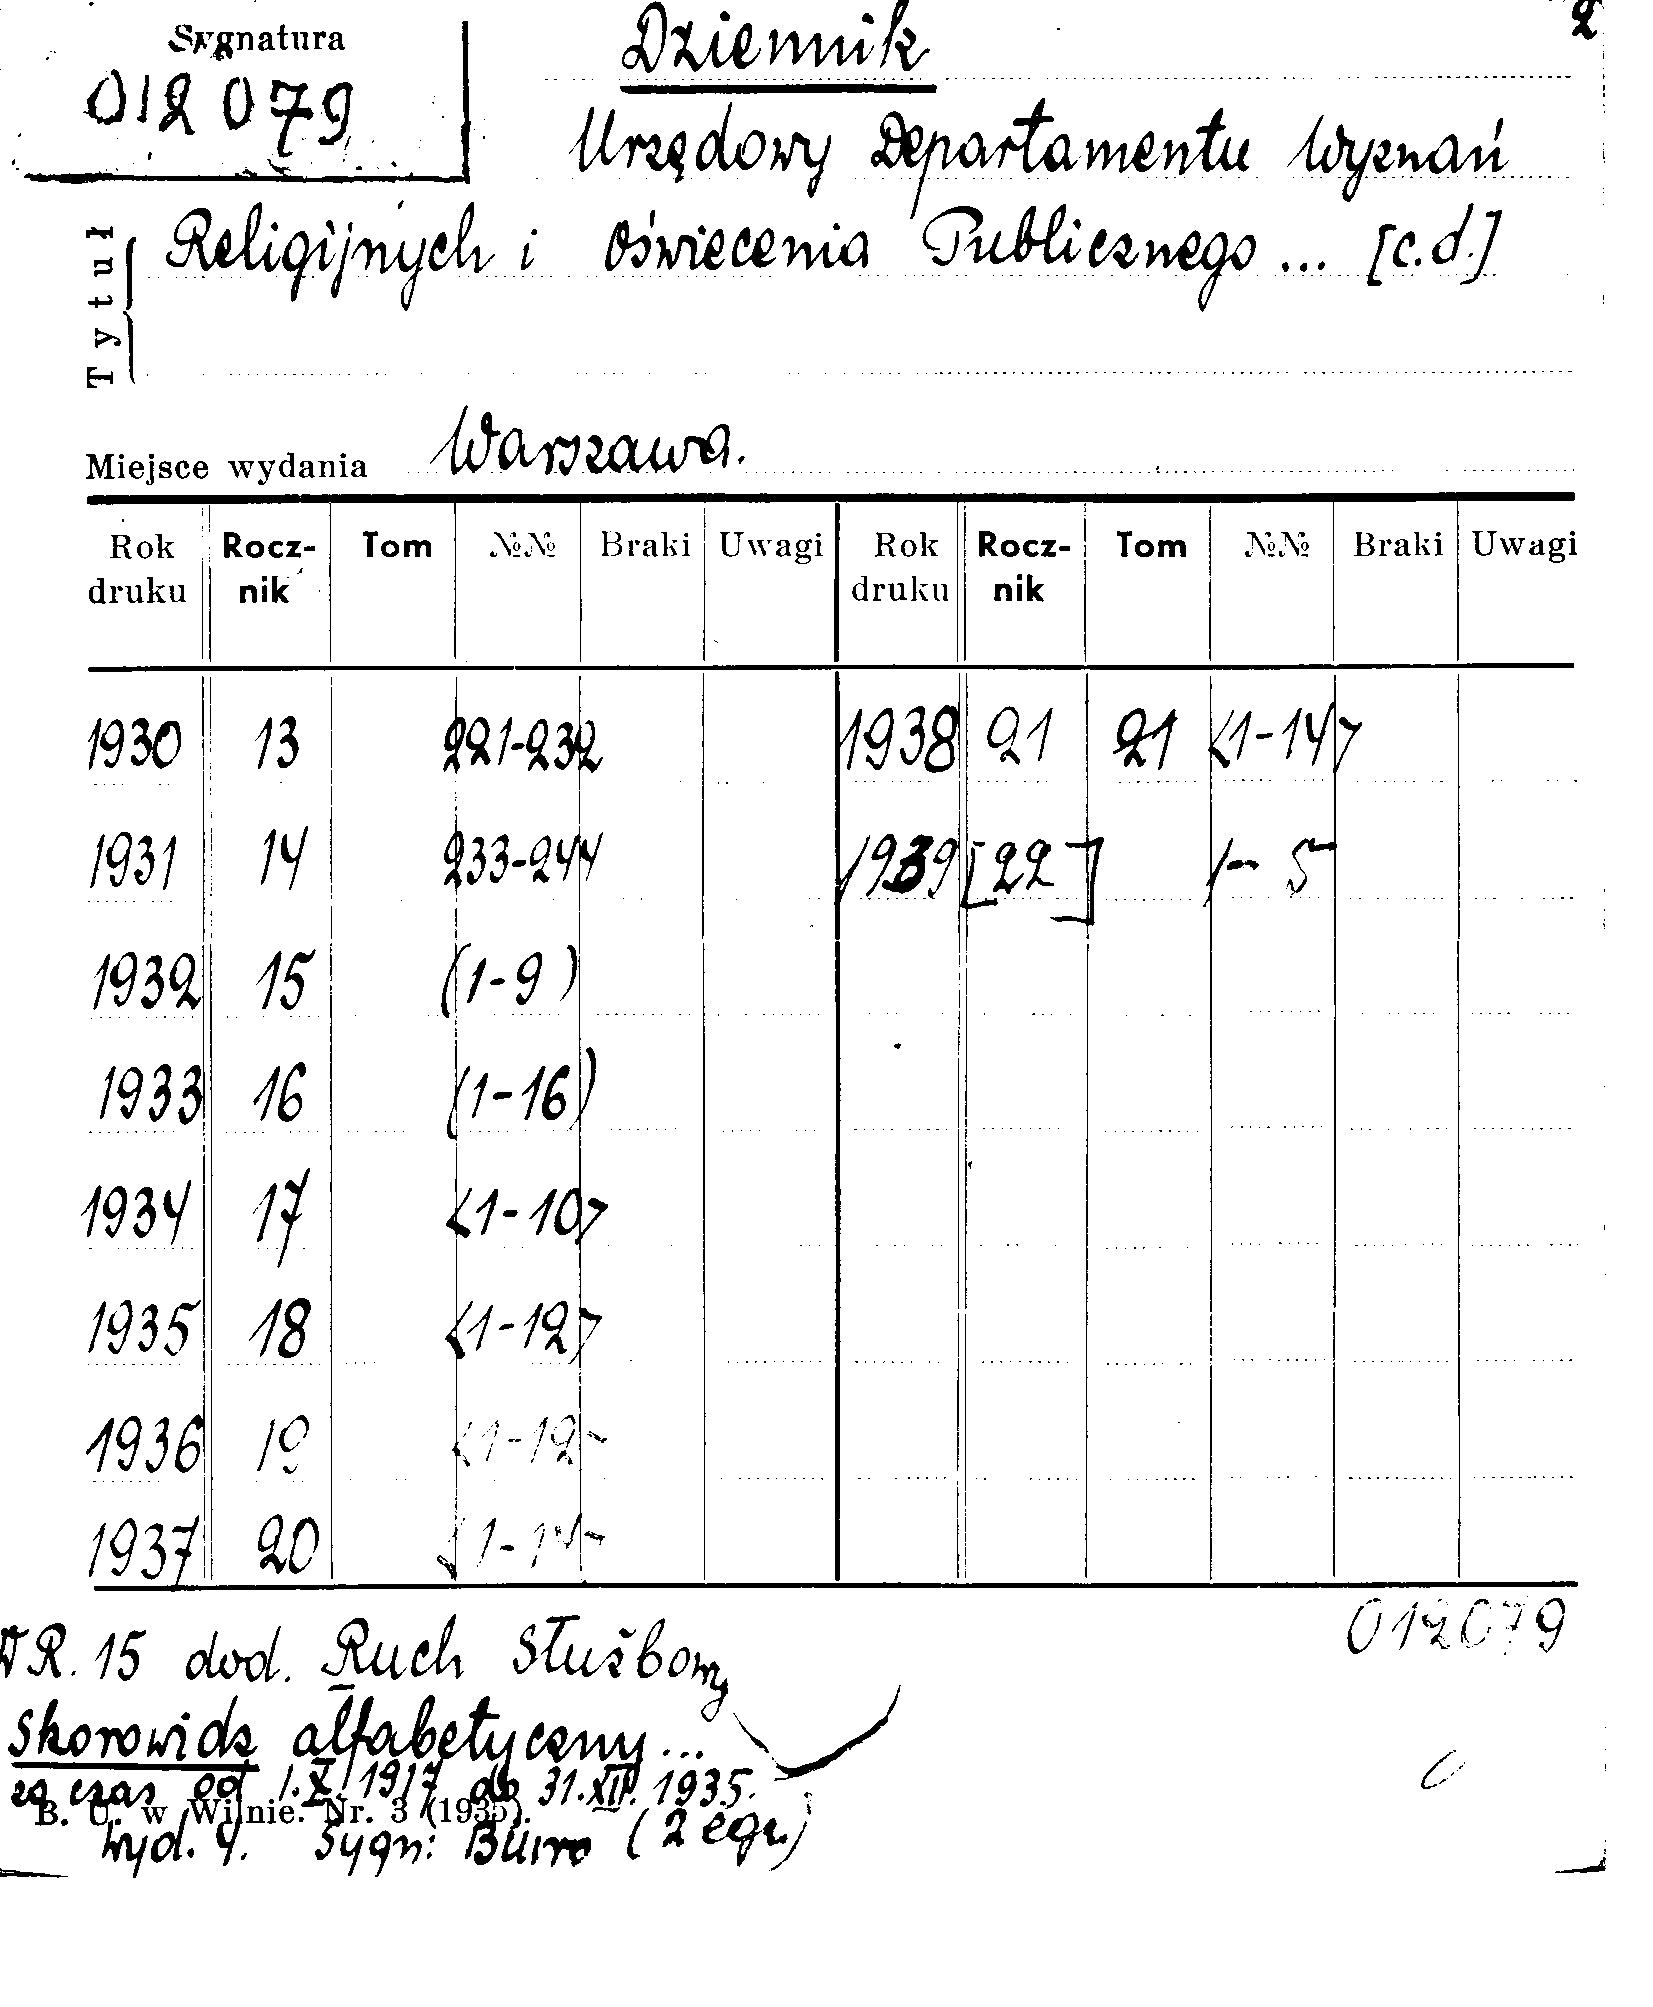 2
Sygnatura
012079
Dziennik
Urzędowy Departamentu Wyznań
Religijnych i Oświecenia Publicznego ... [c.d.]
Tytuł
Miejsce wydania Warszawa.
Rok druku Rocz-nik Tom №№ Braki Uwagi Rok druku Rocz-nik Tom №№ Braki Uwagi
1930 13 221-232 1938 21 21 <1-14>
1931 14 233-244 1939 [22] 1- 5
1932 15 (1-9)
1933 16 (1-16)
1934 17 <1-10>
1935 18 <1-12>
1936 19 <1-12>
1937 20 <1-14>
012079
R. 15 dod. Ruch Służbowy
Skorowidz alfabetyczny...
za czas od 1.X.1917 do 31.XII.1935.
B. U. w Wilnie. Nr. 3 (1935).
Wyd. 4. Sygn: Biuro (2 egz.)